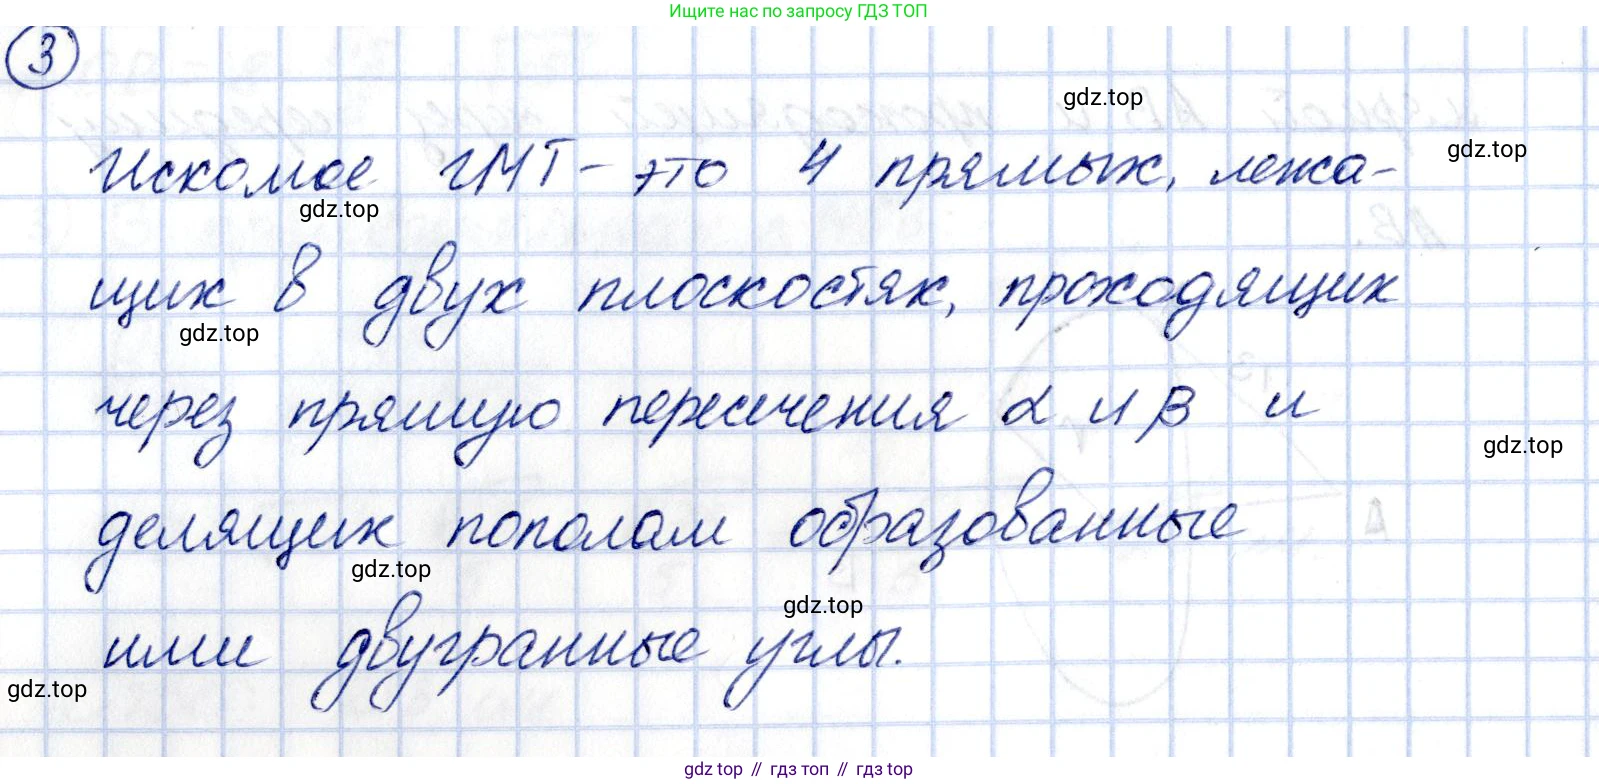 Ищите нас по запросу ГДЗ ТОП
3
gdz.top
gdz.top
Искомое ГМТ - это 4 прямых, лежа-
gdz.top
щих в двух плоскостях, проходящих
gdz.top
через прямую пересечения α и β и
gdz.top
делящих пополам образованные
gdz.top
gdz.top
ими двугранные углы.
gdz.top
gdz top // гдз топ // гдз top